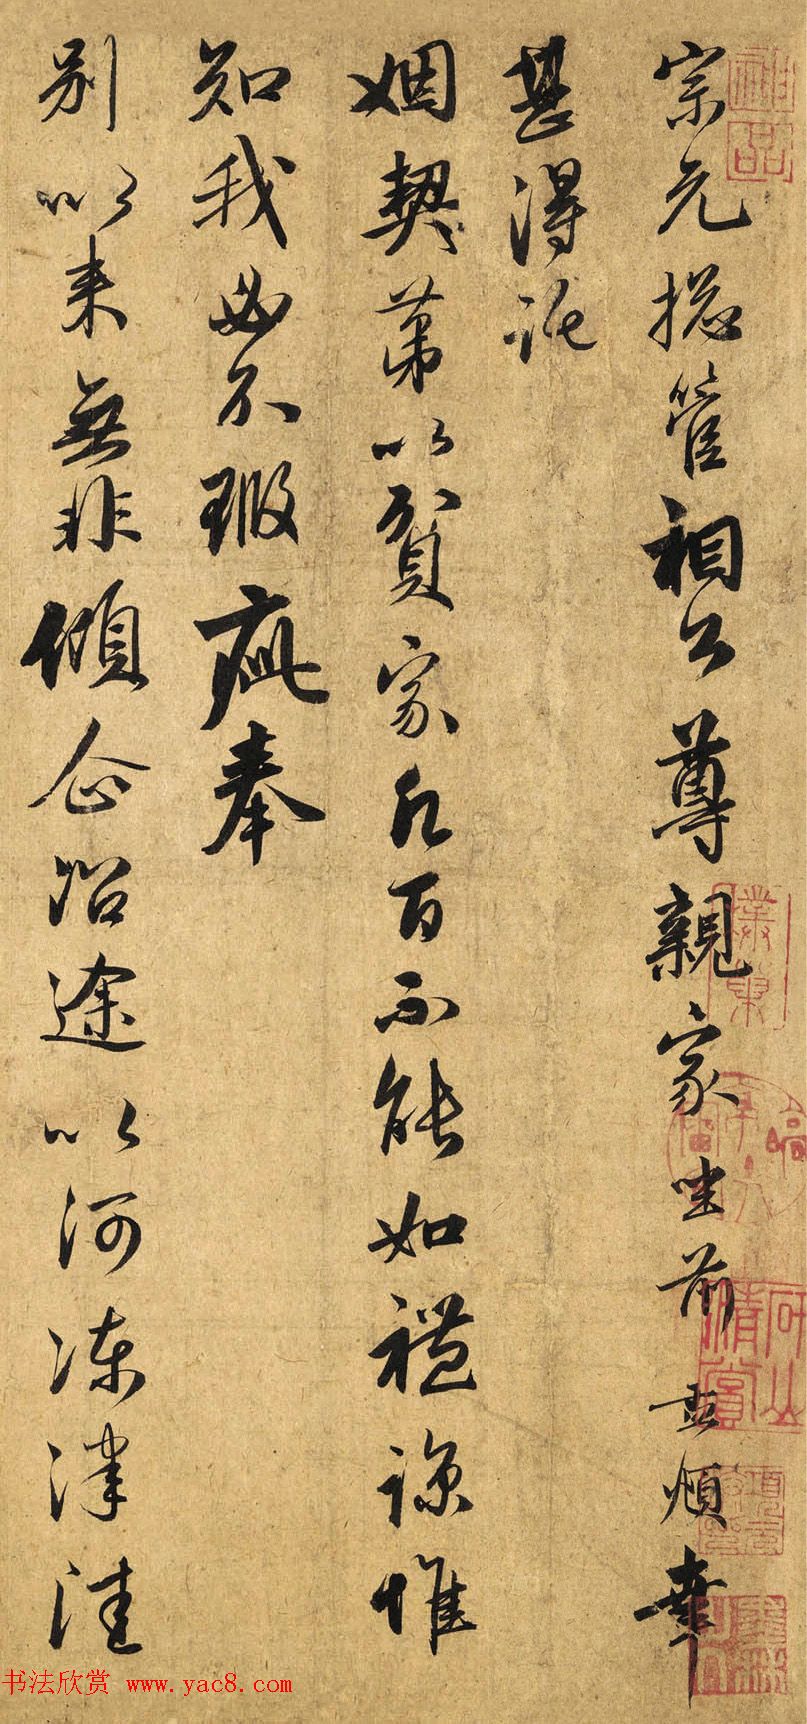 神品
宗元揔管相公尊親家坐前 孟頫幸
甚得託
姻契第以貧家凡百不能如禮諒惟
知我必不瑕疵奉
別以來無非傾企沿途以河凍津
书法欣赏 www.yac8.com